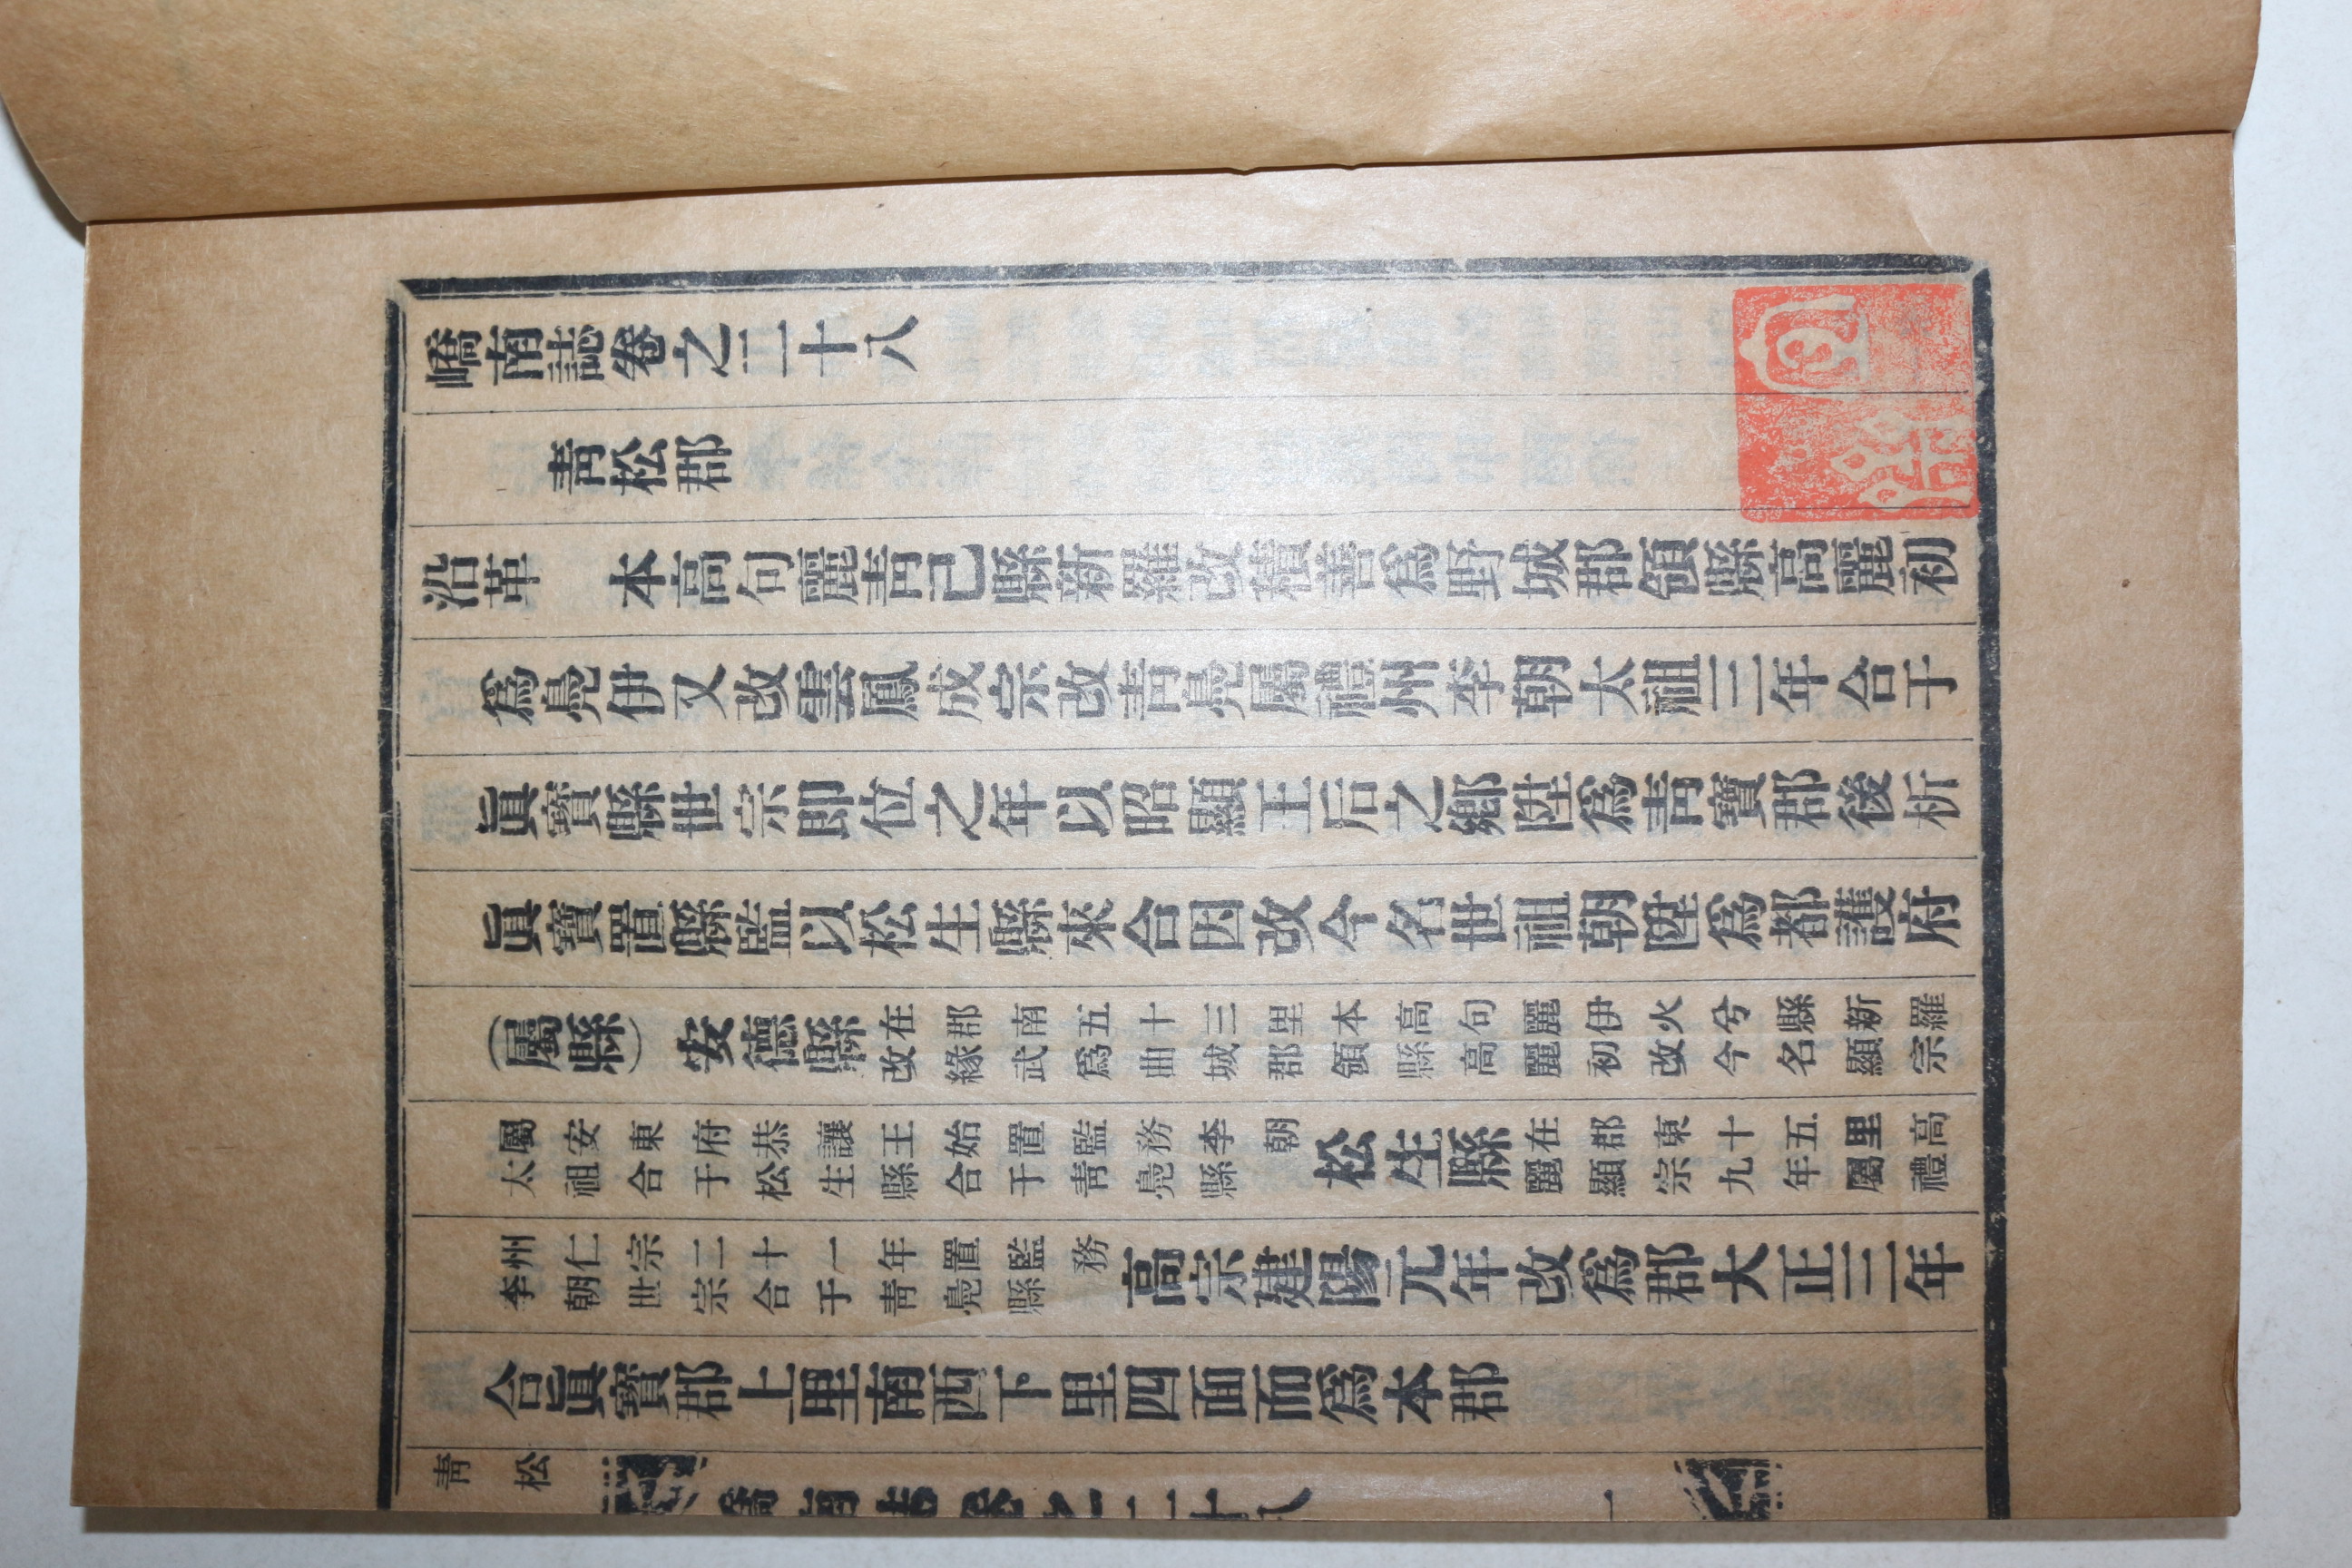 嶠南誌卷之二十八
靑松郡
沿革　本高句麗靑己縣新羅改積善爲野城郡領縣高麗初
爲鳧伊又改雲鳳成宗改靑鳧屬禮州李朝太祖三年合于
眞寶縣世宗即位之年以昭顯王后之鄕陞爲靑寶郡後析
眞寶置縣監以松生縣來合因改今名世祖朝陞爲都護府
(屬縣)　安德縣
在郡南五十三里本高句麗伊火兮縣新羅
改緣武爲曲城郡領縣高麗初改今名顯宗
屬安東府恭讓王始置監務李朝
太祖合于松生縣合于靑鳧縣
松生縣
在郡東十五里高
麗顯宗九年屬禮
州仁宗二十一年置監務
李朝世宗合于靑鳧縣
高宗建陽元年改爲郡大正三年
合眞寶郡上里南西下里四面而爲本郡
靑松
嶠南誌卷之二十八
一